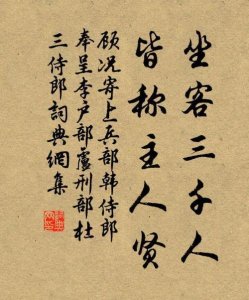 坐客三千人
皆称主人贤
顾况寄上兵部韩侍郎
奉呈李户部卢刑部杜
三侍郎词典网集